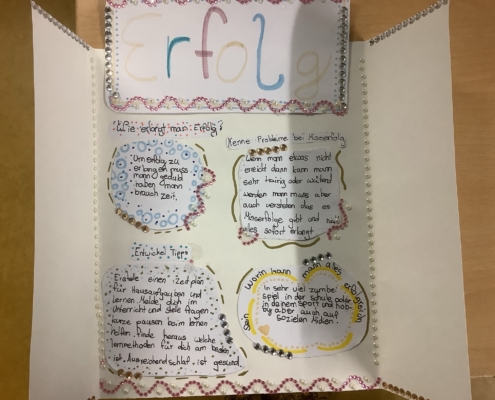 Erfolg
Wie erlangt man Erfolg?
Um erfolg zu
erlangen muss
mann Geduld
haben & mann
brauch zeit.
Kenne Probleme bei Misserfolg
Wenn mann etwas nicht
erreicht dann kann man
sehr traurig oder wütend
werden mann muss aber
auch verstehen das es
Misserfolge gibt und
alles sofort erlangt
Entwickel Tipps
Erstelle einen Zeitplan
für Hausaufgaben und
lernen. Melde dich im
Unterricht und stelle fragen
kurze pausen beim lernen
helfen. finde heraus welche
lernmethoden für dich am besten
ist. Ausreichend schlaf ist gesund
Worin kann mann alles erfolgreich
sein
In sehr viel zumbei
spiel in der schule oder
in deinem sport und hob-
by aber auch auf
sozialen